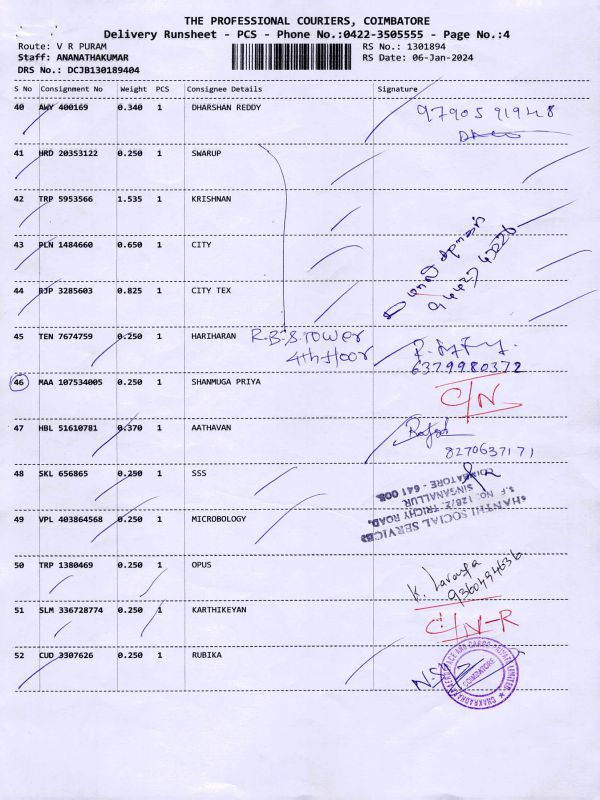 THE PROFESSIONAL COURIERS, COIMBATORE
Delivery Runsheet - PCS - Phone No.:0422-3505555 - Page No.:4
Route: V R PURAM RS No.: 1301894
Staff: ANANATHAKUMAR RS Date: 06-Jan-2024
DRS No.: DCJB130189404
S No Consignment No Weight PCS Consignee Details Signature
40 AWY 400169 0.340 1 DHARSHAN REDDY 9790591948
41 HRD 20353122 0.250 1 SWARUP
42 TRP 5953566 1.535 1 KRISHNAN
43 PLN 1484660 0.650 1 CITY
44 RJP 3285603 0.825 1 CITY TEX
45 TEN 7674759 0.250 1 HARIHARAN R.B.S TOWER
4th floor
6379980372
46 MAA 107534005 0.250 1 SHANMUGA PRIYA C/N
47 HBL 51610781 0.370 1 AATHAVAN
8270637171
48 SKL 656865 0.250 1 SSS
SHANTHI SOCIAL SERVICES
S.F. NO. 128/2, TRICHY ROAD,
SINGANALLUR
COIMBATORE - 641 005.
49 VPL 403864568 0.250 1 MICROBOLOGY
50 TRP 1380469 0.250 1 OPUS
9360494636
51 SLM 336728774 0.250 1 KARTHIKEYAN C/N-R
52 CUD 3307626 0.250 1 RUBIKA
COIMBATORE